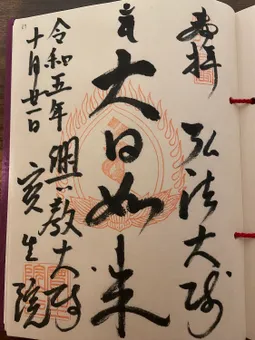 奉拝
弘法大師
大日如来
令和五年
興教大師
十月廿一日
寳生院